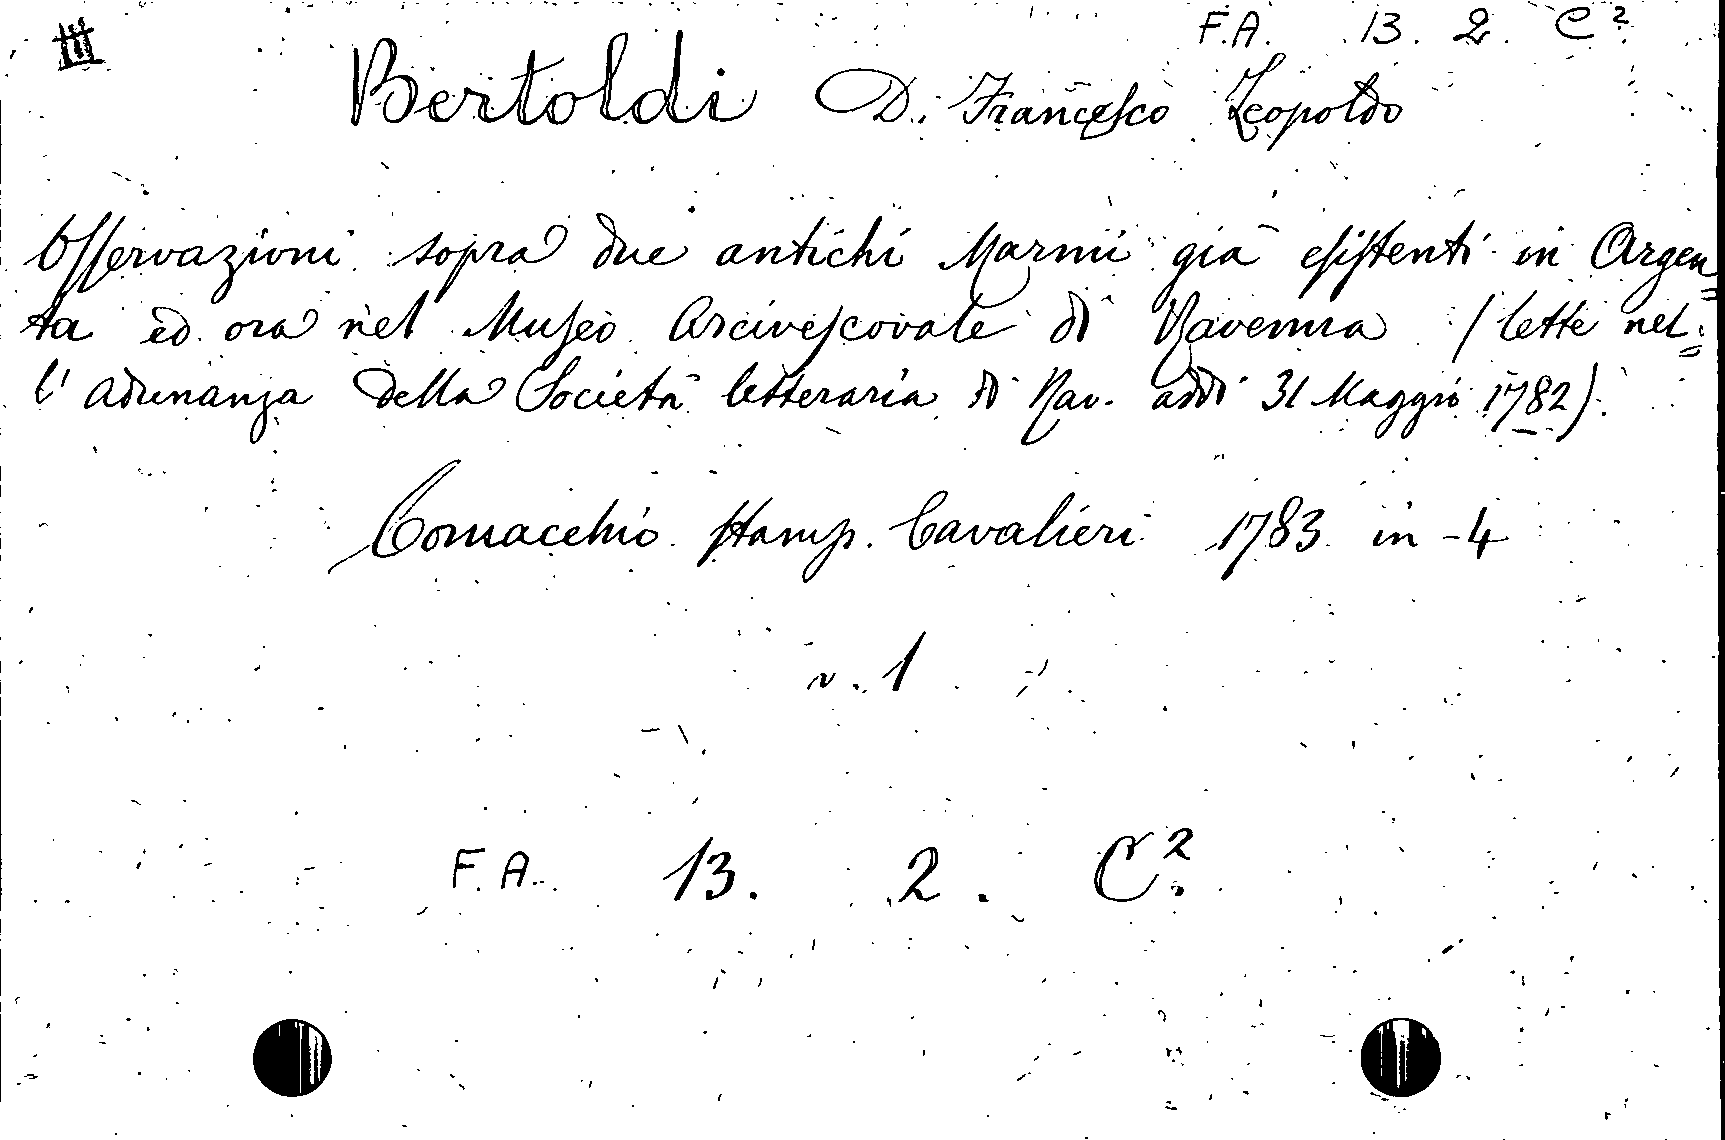 F.A. 13. 2. C²
Bertoldi D. Francesco Leopoldo
Osservazioni sopra due antichi Marmi già esistenti in Argen=
ta ed ora nel Museo Arcivescovale di Ravenna (lette nel=
l'adunanza della Società letteraria di Rav. addì 31 Maggio 1782).
Comacchio Stamp. Cavalieri 1783 in-4
n. 1
F.A. 13. 2. C²